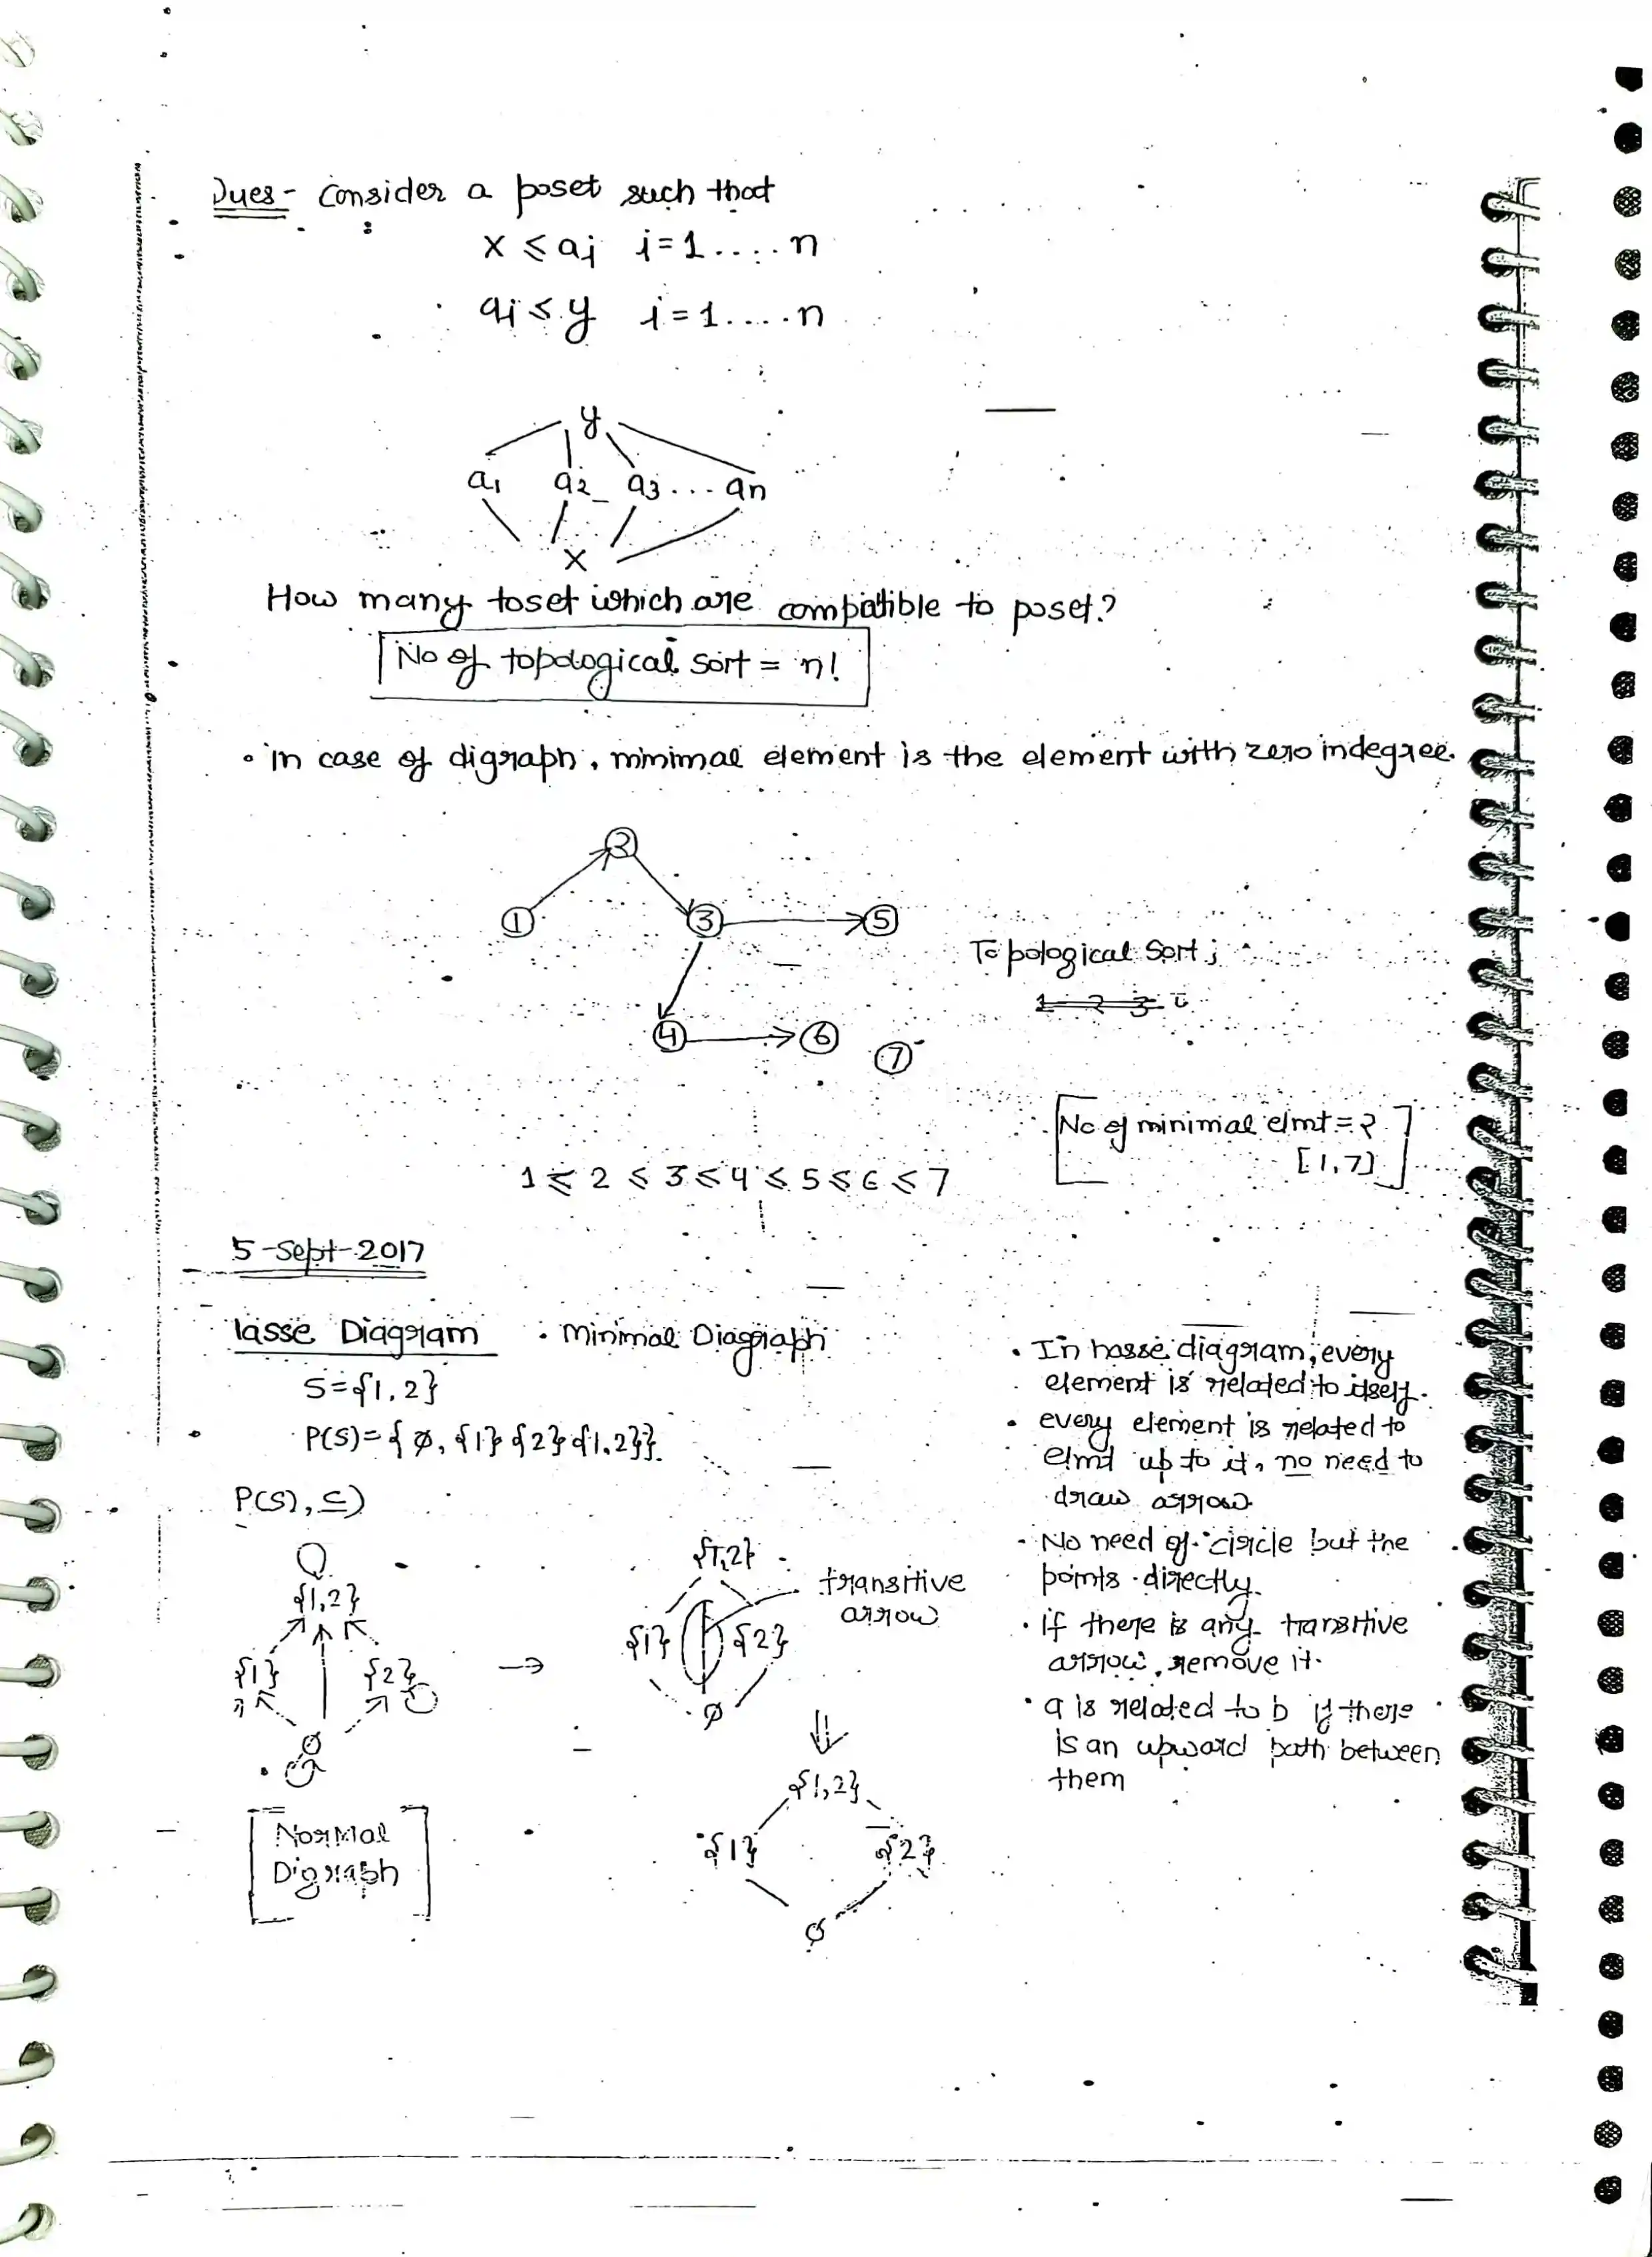 Ques - Consider a poset such that
x ≤ ai i = 1 .... n
ai ≤ y i = 1 .... n
y
a1 a2 a3 ... an
x
How many toset which are compatible to poset?
No of topological sort = n!
• in case of digraph, minimal element is the element with zero indegree.
2
1 3 5
Topological Sort ;
1 2 3
4 6 7
No of minimal elmt = 2
[1,7]
1 ≤ 2 ≤ 3 ≤ 4 ≤ 5 ≤ 6 ≤ 7
5-Sept-2017
lasse Diagram : Minimal Diagraph
S = {1, 2}
P(S) = { ∅, {1} {2} {1,2}}
P(S), ⊆)
{1,2}
{1} {2}
∅
Normal
Digraph
→
{1,2}
transitive
arrow
{1} {2}
∅
⇓
{1,2}
{1} {2}
∅
• In hasse diagram, every
element is related to itself.
• every element is related to
elmt up to it, no need to
draw arrow
- No need of circle but the
points directly.
• if there is any transitive
arrow, remove it.
• a is related to b if there
is an upward path between
them